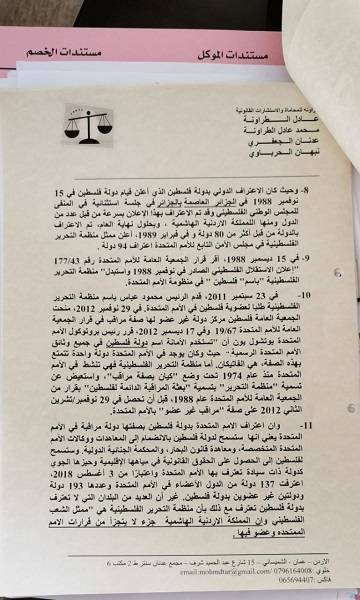 مستندات الموكل
مستندات الخصم
للمحاماة والاستشارات القانونية
عادل الطراونة
محمد عادل الطراونة
عدنان الجعفري
نبهان الحرباوي
8- وحيث كان الاعتراف الدولي بدولة فلسطين الذي أعلن قيام دولة فلسطين في 15
نوفمبر 1988 في الجزائر العاصمة بالجزائر في جلسة استثنائية في المنفى
للمجلس الوطني الفلسطيني وقد تم الاعتراف بهذا الإعلان بسرعة من قبل عدد من
الدول ومنها المملكة الاردنية الهاشمية ، وبحلول نهاية العام، تم الاعتراف
بالدولة من قبل أكثر من 80 دولة و في فبراير 1989، أعلن ممثل منظمة التحرير
الفلسطينية في مجلس الأمن التابع للأمم المتحدة اعتراف 94 دولة .
9- في 15 ديسمبر 1988، أقر قرار الجمعية العامة للأمم المتحدة رقم 177/43
"إعلان الاستقلال الفلسطيني الصادر في نوفمبر 1988 واستبدل" منظمة التحرير
الفلسطينية "باسم" فلسطين " في منظومة الأمم المتحدة.
10- في 23 سبتمبر 2011، قدم الرئيس محمود عباس باسم منظمة التحرير
الفلسطينية طلبا لعضوية فلسطين في الأمم المتحدة. في 29 نوفمبر 2012، منحت
الجمعية العامة فلسطين مركز دولة غير عضو لها صفة مراقب في قرار الجمعية
العامة للأمم المتحدة 19/67 وفي 17 ديسمبر 2012، قرر رئيس بروتوكول الأمم
المتحدة يوتشول يون أن "تستخدم الأمانة اسم دولة فلسطين في جميع وثائق
الأمم المتحدة الرسمية- حيث وكان يوجد في الأمم المتحدة دولة واحدة تتمتع
بهذه الصفة، هي الفاتيكان. أما منظمة التحرير الفلسطينية فهي تنشط في الأمم
المتحدة منذ عام 1974 تحت وضع "كيان بصفة مراقب"، واستعيض عن
تسمية "منظمة التحرير" بتسمية "بعثة المراقبة الدائمة لفلسطين" بقرار من
الجمعية العامة للأمم المتحدة عام 1988، قبل أن تحصل في 29 نوفمبر/تشرين
الثاني 2012 على صفة "مراقب غير عضو" بالأمم المتحدة.
11- وان اعتراف الأمم المتحدة بدولة فلسطين بصفتها دولة مراقبة في الأمم
المتحدة يعني انها ستسمح لدولة فلسطين بالانضمام إلى المعاهدات ووكالات الأمم
المتحدة المتخصصة، ومعاهدة قانون البحار، والمحكمة الجنائية الدولية. وستسمح
لفلسطين إلى الحصول على الحقوق القانونية في مياهها الإقليمية وحيزها الجوي
كدولة ذات سيادة تعترف بها الأمم المتحدة واعتبارًا من 3 أغسطس 2018،
اعترفت 137 دولة من الدول الأعضاء في الأمم المتحدة وعددها 193 دولة
ودولتين غير عضوين بدولة فلسطين. غير أن العديد من البلدان التي لا تعترف
بدولة فلسطين تعترف مع ذلك بأن منظمة التحرير الفلسطينية هي "ممثل الشعب
الفلسطيني وإن المملكة الاردنية الهاشمية جزء لا يتجزأ من قرارات الامم
المتحده وعضو فيها .
الاردن – عمان - الشميساني – 15 شارع عبد الحميد شرف – مجمع عدنان سنتر ط 2 مكتب 6
خلوي 0796164008 /email:mohmdtar@gmail.com
فاكس: 065694407